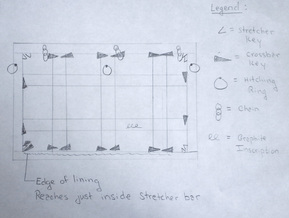 Legend:
∠ = Stretcher Key
= Crossbar Key
= Hitching Ring
= Chain
RR = Graphite Inscription
RR
Edge of lining
Reaches just inside Stretcher bar